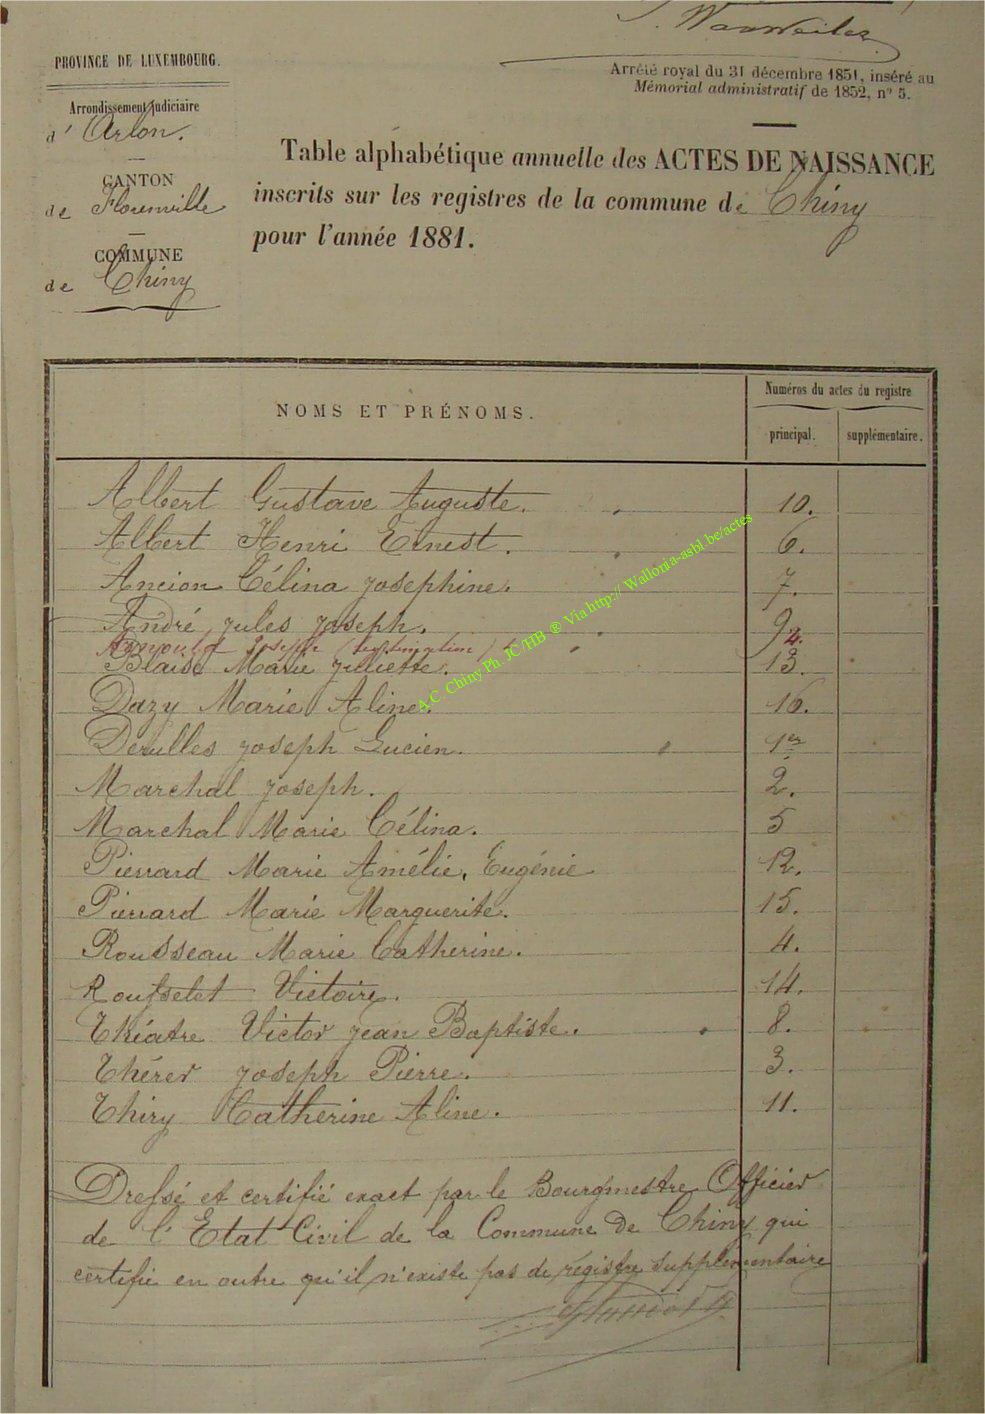 PROVINCE DE LUXEMBOURG.
Arrondissement judiciaire
d' Arlon.
CANTON
de Florenville
COMMUNE
de Chiny
Arrêté royal du 31 décembre 1851, inséré au
Mémorial administratif de 1852, n° 5.
Table alphabétique annuelle des ACTES DE NAISSANCE
inscrits sur les registres de la commune de Chiny
pour l'année 1881.
NOMS ET PRÉNOMS.
Numéros du actes du registre
principal. supplémentaire.
Albert Gustave Auguste. 10.
Albert Henri Ernest. 6.
Ancion Célina Josephine. 7.
André Jules Joseph. 9
Joseph (légitimation) 4.
Blaise Marie Juliette. 13.
Dazy Marie Aline. 16.
Derulles Joseph Lucien. 1er
Marchal Joseph. 2.
Marchal Marie Célina. 5
Pierrard Marie Amélie, Eugénie 12.
Pierrard Marie Marguerite. 15.
Rousseau Marie Catherine. 4.
Rousselet Victoire. 14.
Théatre Victor Jean Baptiste. 8.
Thérer Joseph Pierre. 3.
Thiry Catherine Aline. 11.
Dressé et certifié exact par le Bourgmestre Officier
de l'Etat Civil de la Commune de Chiny qui
certifie en outre qu'il n'existe pas de régistre supplémentaire
A.C. Chiny Ph. JC/HB ® Via http:// Wallonia-asbl.be/actes